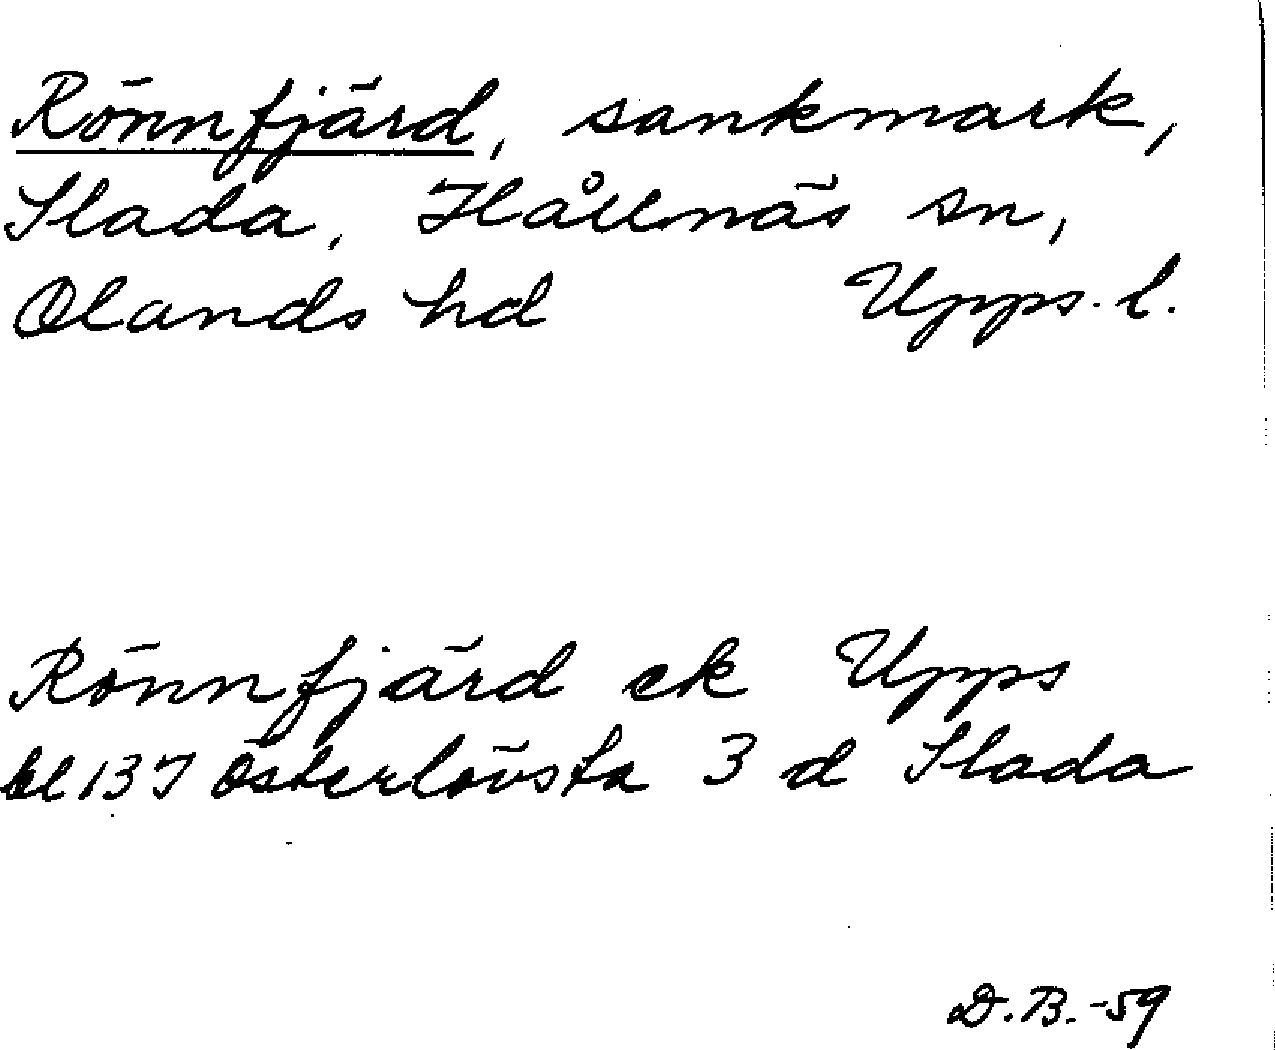 Rönnfjärd, sankmark,
Slada, Hållnäs sn,
Olands hd Upps. l.
Rönnfjärd ek Upps
bl 137 Österlövsta 3 d Slada
D.B.-59